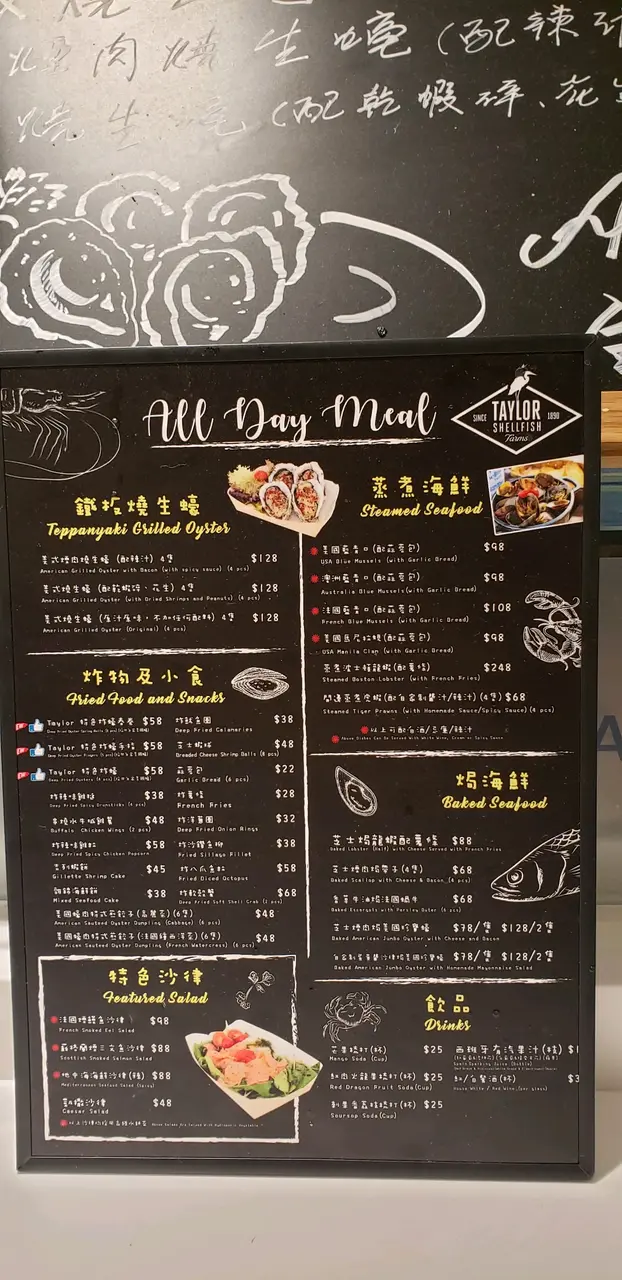 肉燒生蠔(配辣汁
燒生蠔(配乾蝦碎、花生
All Day Meal
SINCE TAYLOR 1890
SHELLFISH
Farms
鐵板燒生蠔
Teppanyaki Grilled Oyster
美式燒肉燒生蠔 (配辣汁) 4隻 $128
American Grilled Oyster with Bacon (with spicy sauce) (4 pcs)
美式燒生蠔 (配乾蝦碎、花生) 4隻 $128
American Grilled Oyster (with Dried Shrimps and Peanuts) (4 pcs)
美式燒生蠔 (原汁原味，不加任何配料) 4隻 $128
American Grilled Oyster (Original) (4 pcs)
炸物及小食
Fried Food and Snacks
Taylor 特色炸蠔春卷 $58
Deep Fried Oyster Spring Rolls
Taylor 特色炸蠔手指 $58
Deep Fried Oyster Fingers
Taylor 特色炸蠔 $58
Deep Fried Oysters
炸辣味雞槌 $38
Deep Fried Spicy Drumsticks (4 pcs)
香燒水牛城雞翼 $48
Buffalo Chicken Wings (2 pcs)
炸辣味雞粒 $58
Deep Fried Spicy Chicken Popcorn
吉列蝦餅 $45
Gillette Shrimp Cake
雜錦海鮮餅 $38
Mixed Seafood Cake
炸魷魚圈 $38
Deep Fried Calamaries
芝士蝦球 $48
Breaded Cheese Shrimp Balls (8 pcs)
蒜蓉包 $22
Garlic Bread (6 pcs)
炸薯條 $28
French Fries
炸洋蔥圈 $32
Deep Fried Onion Rings
炸沙鑽魚柳 $38
Fried Sillago Fillet
炸八爪魚粒 $58
Fried Diced Octopus
炸軟殼蟹 $68
Deep Fried Soft Shell Crab (2 pcs)
美國蠔肉韓式煎餃子(高麗菜)(6隻) $48
American Sauteed Oyster Dumpling (Cabbage) (6 pcs)
美國蠔肉韓式煎餃子(法國種西洋菜)(6隻) $48
American Sauteed Oyster Dumpling (French Watercress) (6 pcs)
特色沙律
Featured Salad
法國煙鱔魚沙律 $98
French Smoked Eel Salad
蘇格蘭煙三文魚沙律 $88
Scottish Smoked Salmon Salad
地中海海鮮沙律(辣) $88
Mediterranean Seafood Salad (Spicy)
凱撒沙律 $48
Caesar Salad
Above Salads Are Served With Hydroponic Vegetable
蒸煮海鮮
Steamed Seafood
美國藍青口(配蒜蓉包) $98
USA Blue Mussels (with Garlic Bread)
澳洲藍青口(配蒜蓉包) $98
Australia Blue Mussels(with Garlic Bread)
法國藍青口(配蒜蓉包) $108
French Blue Mussels (with Garlic Bread)
美國馬尼拉蜆(配蒜蓉包) $98
USA Manila Clam (with Garlic Bread)
蒸煮波士頓龍蝦(配薯條) $248
Steamed Boston Lobster (with French Fries)
開邊蒸老虎蝦(配自家制醬汁/辣汁)(4隻) $68
Steamed Tiger Prawns (with Homemade Sauce/Spicy Sauce)(4 pcs)
以上可配白酒/忌廉/辣汁
Above Dishes Can Be Served With White Wine, Cream or Spicy Sauce
焗海鮮
Baked Seafood
芝士焗龍蝦配薯條 $88
Baked Lobster (Half) with Cheese Served with French Fries
芝士煙肉焗帶子(4隻) $68
Baked Scallop with Cheese & Bacon (4 pcs)
香草牛油焗法國蝸牛 $68
Baked Escargots with Parsley Buter (6 pcs)
芝士煙肉焗美國珍寶蠔 $78/隻 $128/2隻
Baked American Jumbo Oyster with Cheese and Bacon
自家制蛋黃醬沙律焗美國珍寶蠔 $78/隻 $128/2隻
Baked American Jumbo Oyster with Homemade Mayonnaise Salad
飲品
Drinks
芒果梳打(杯) $25
Mango Soda (Cup)
紅肉火龍果梳打(杯) $25
Red Dragon Fruit Soda(Cup)
刺果番荔枝梳打(杯) $25
Soursop Soda(Cup)
西班牙有汽果汁(枝) $1
Spain Sparkling Juice (Bottle)
紅/白餐酒(杯) $3
House White / Red Wine (per glass)